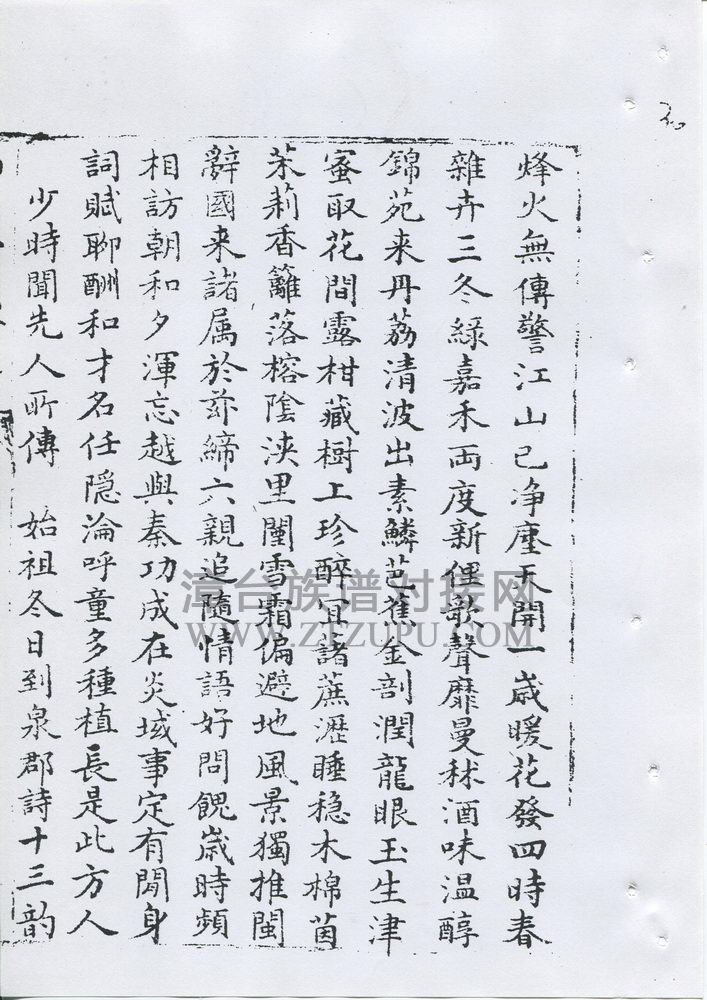 烽火無傳警江山已净塵天開一歲暖花發四時春
雜卉三冬綠嘉禾両度新俚歌聲靡曼秫酒味温醇
錦苑来丹荔清波出素鱗芭蕉金剖潤龍眼玉生津
蜜取花間露柑藏樹上珍醉冝諸蔗瀝睡穏木棉茵
茉莉香籬落榕陰浹里闉雪霜偏避地風景獨推閩
辭國来諸属於茲締六親追隨情語好問餽歲時頻
相訪朝和夕渾忘越與秦功成在炎域事定有閒身
詞賦聊酬和才名任隠淪呼童多種植長是此方人
少時聞先人所傳 始祖冬日到泉郡詩十三韵
漳台族谱对接网
WWW.ZTZUPU.COM